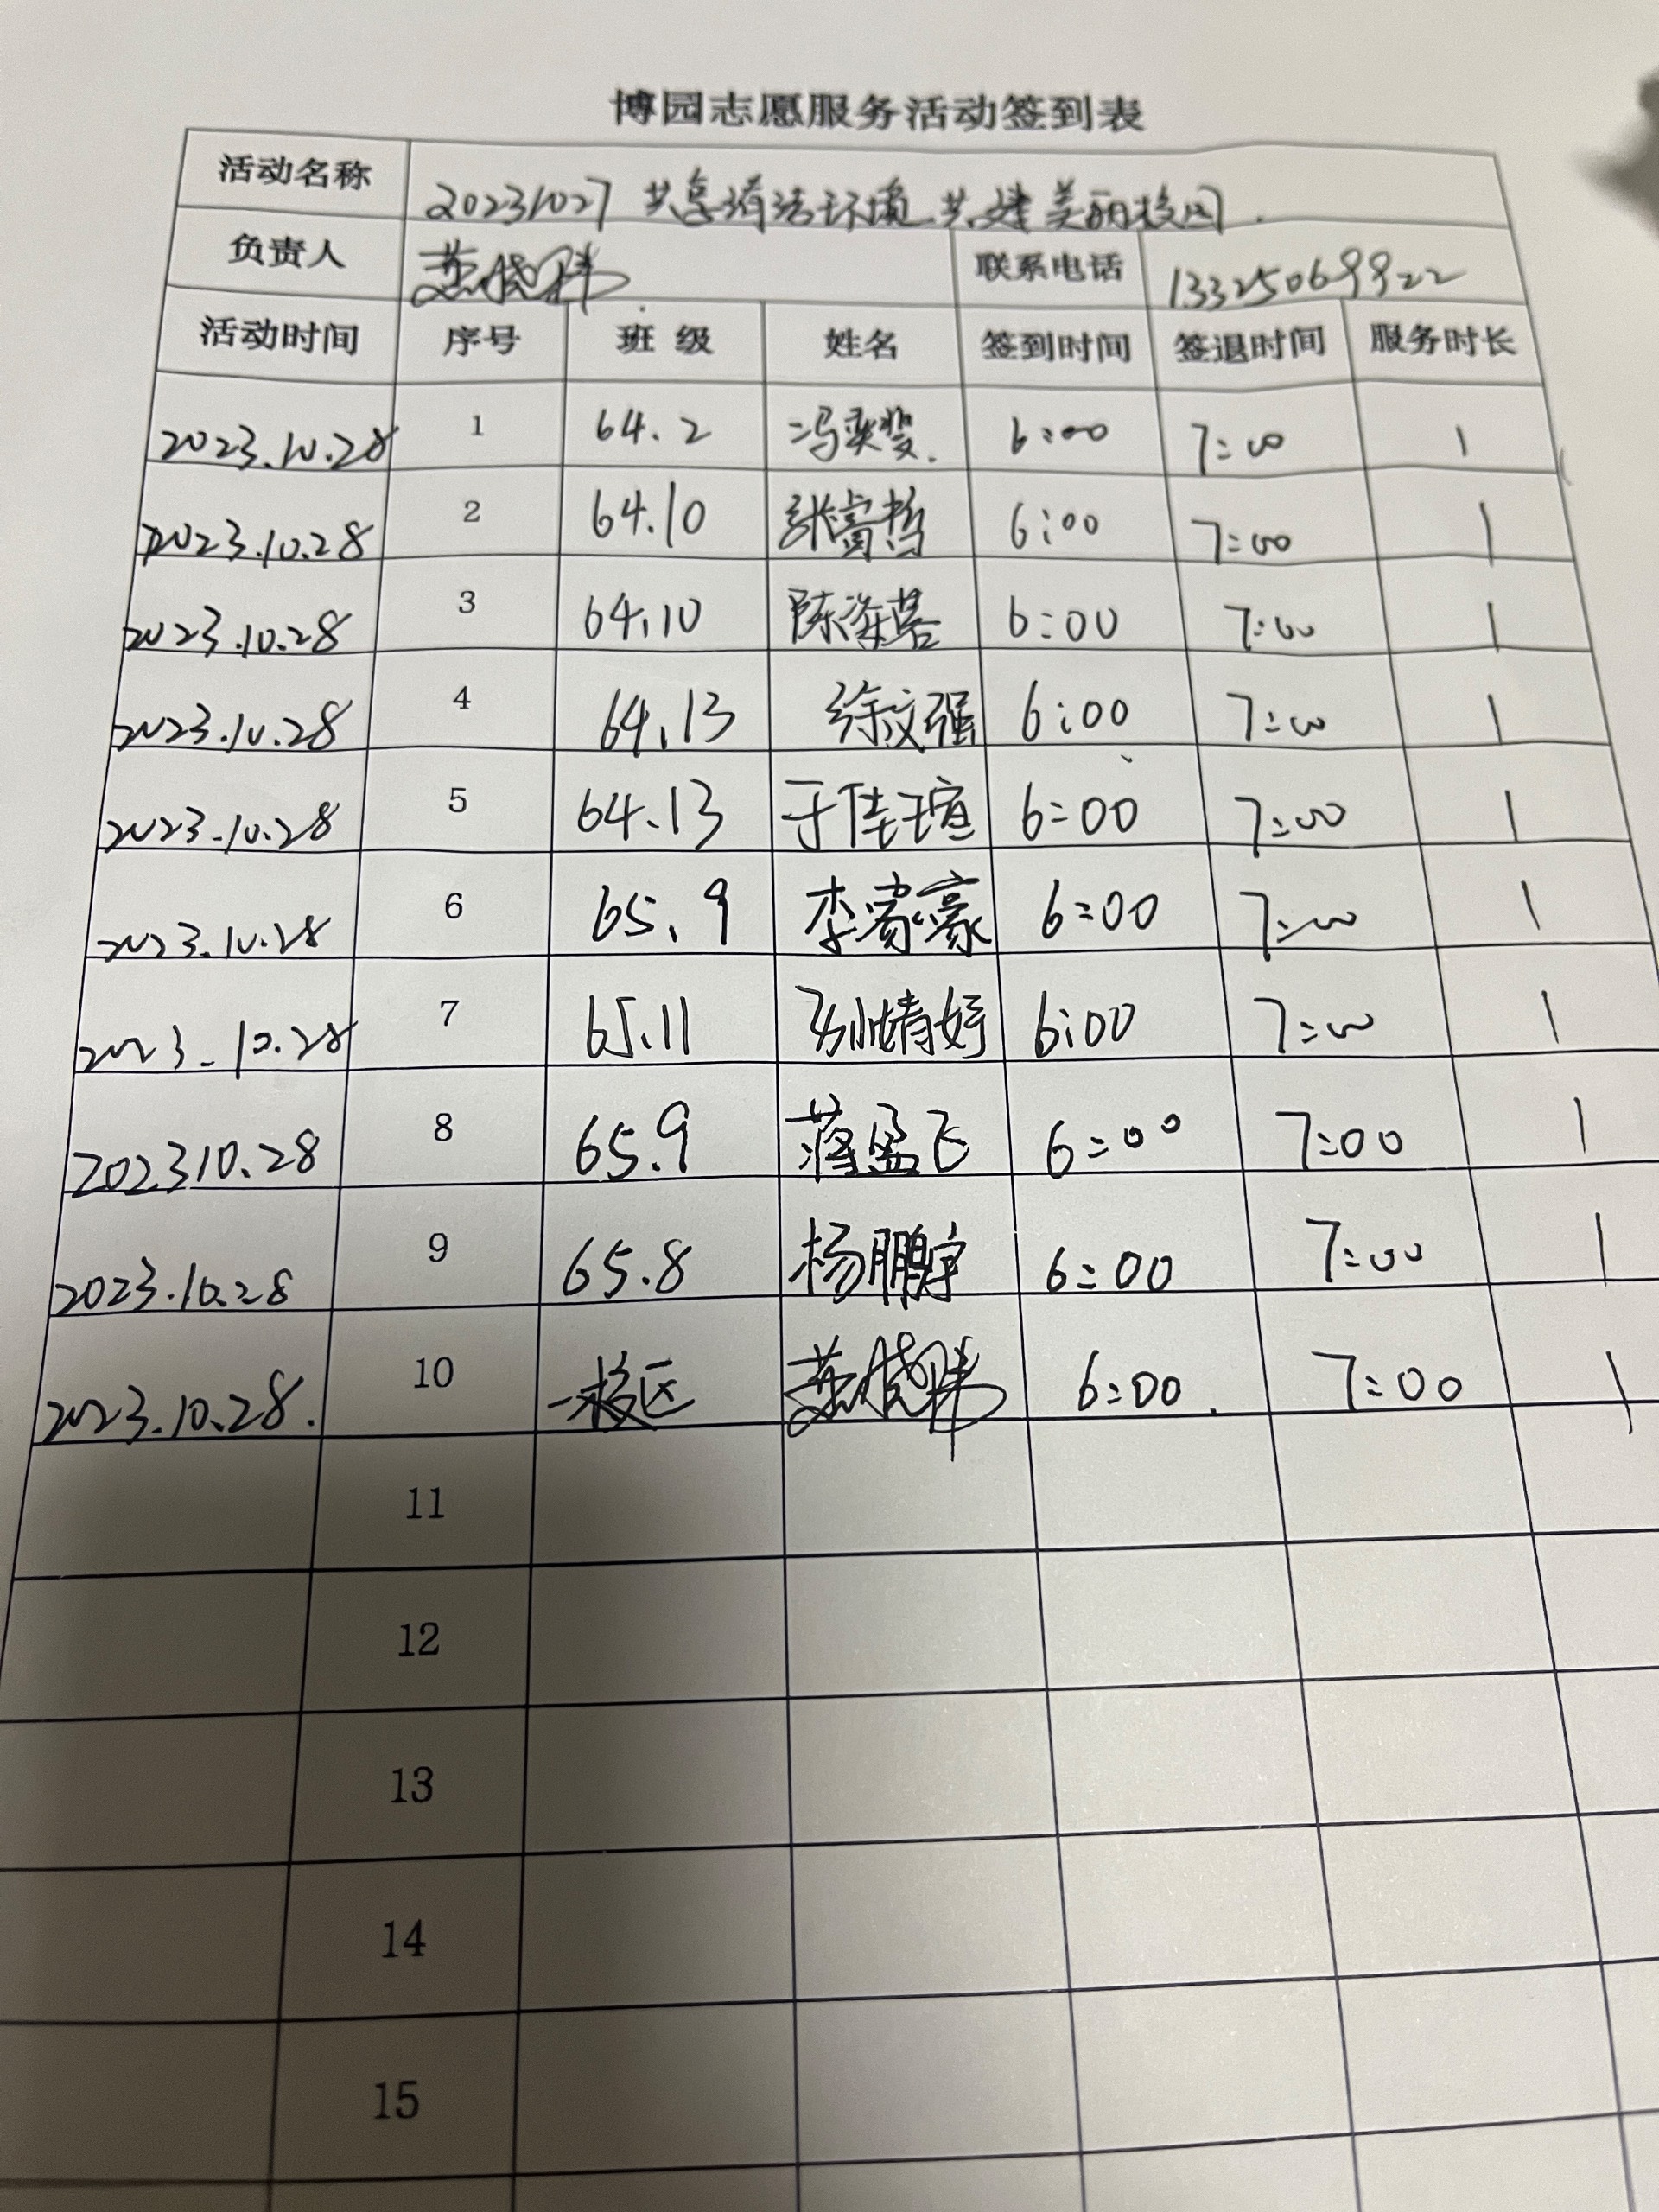 博园志愿服务活动签到表
活动名称 20231027 共享清洁环境 共建美丽校园.
负责人 联系电话 13325069922
活动时间 序号 班 级 姓名 签到时间 签退时间 服务时长
2023.10.28 1 64.2 冯奕斐. 6:00 7:00 1
2023.10.28 2 64.10 张富哲 6:00 7:00 1
2023.10.28 3 64.10 陈 6:00 7:00 1
2023.10.28 4 64.13 徐文强 6:00 7:00 1
2023.10.28 5 64.13 于佳瑄 6:00 7:00 1
2023.10.28 6 65.9 李豪 6:00 7:00 1
2023.10.28 7 65.11 孙婧婷 6:00 7:00 1
202310.28 8 65.9 蒋孟飞 6:00 7:00 1
2023.10.28 9 65.8 杨鹏宇 6:00 7:00 1
2023.10.28. 10 一校区 6:00. 7:00 1
11
12
13
14
15